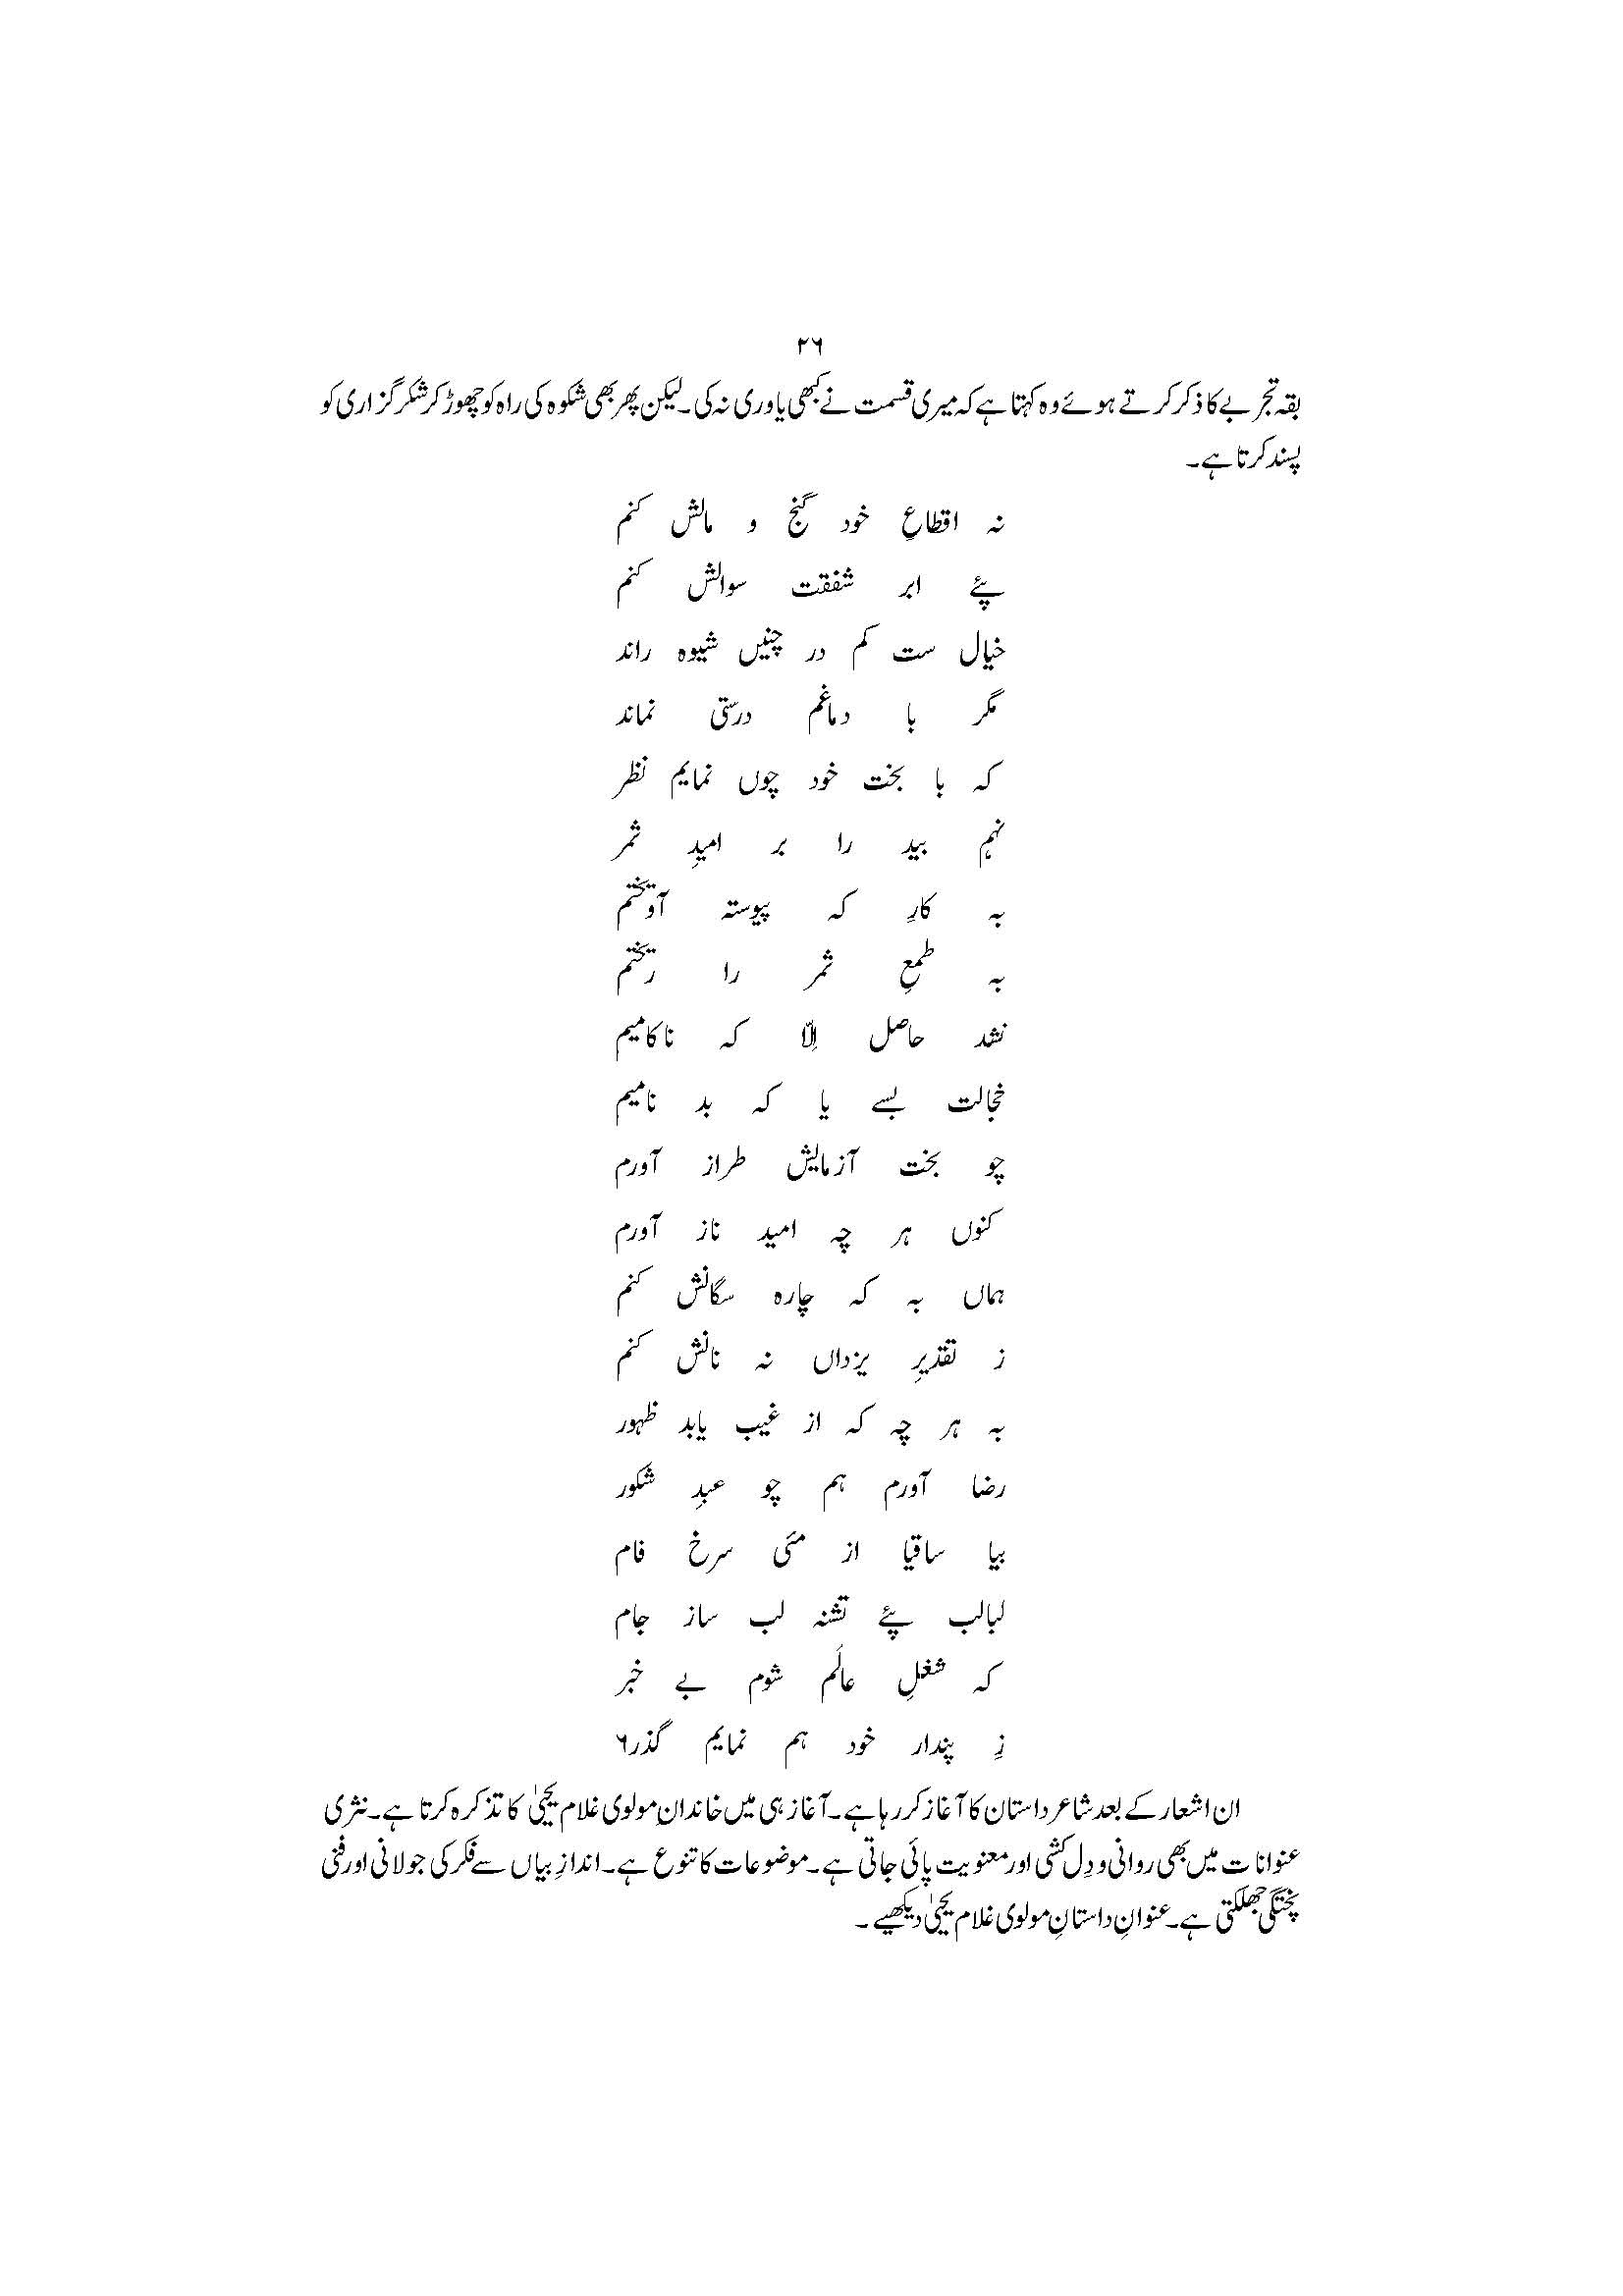 ۲۶
بقہ تجربے کا ذکر کرتے ہوئے وہ کہتا ہے کہ میری قسمت نے کبھی یاوری نہ کی۔ لیکن پھر بھی شکوہ کی راہ کو چھوڑ کر شکر گزاری کو
پسند کرتا ہے۔
نہ اقطاعِ خود گنج و مالش کنم
پئے ابر شفقت سوالش کنم
خیال ست کم در چنیں شیوہ راند
مگر با دماغم درستی نماند
کہ با بخت خود چوں نمایم نظر
نہم بید را بر امیدِ ثمر
بہ کارِ کہ پیوستہ آویختم
بہ طمعِ ثمر را ریختم
نشد حاصل اِلّا کہ ناکامیم
خجالت بسے یا کہ بد نامیم
چو بخت آزمایش طراز آورم
کنوں ہر چہ امید ناز آورم
ہماں بہ کہ چارہ سگالش کنم
ز تقدیرِ یزداں نہ نالش کنم
بہ ہر چہ کہ از غیب یابد ظہور
رضا آورم ہم چو عبدِ شکور
بیا ساقیا از مئی سرخ فام
لبالب پئے تشنہ لب ساز جام
کہ شغلِ عالَم شوم بے خبر
زِ پندار خود ہم نمایم گذر۶
ان اشعار کے بعد شاعر داستان کا آغاز کر رہا ہے۔ آغاز ہی میں خاندانِ مولوی غلام یحییٰ کا تذکرہ کرتا ہے۔ نثری
عنوانات میں بھی روانی و دِل کشی اور معنویت پائی جاتی ہے۔ موضوعات کا تنوع ہے۔ اندازِ بیاں سے فکر کی جولانی اور فنی
پختگی جھلکتی ہے۔ عنوانِ داستانِ مولوی غلام یحییٰ دیکھیے۔